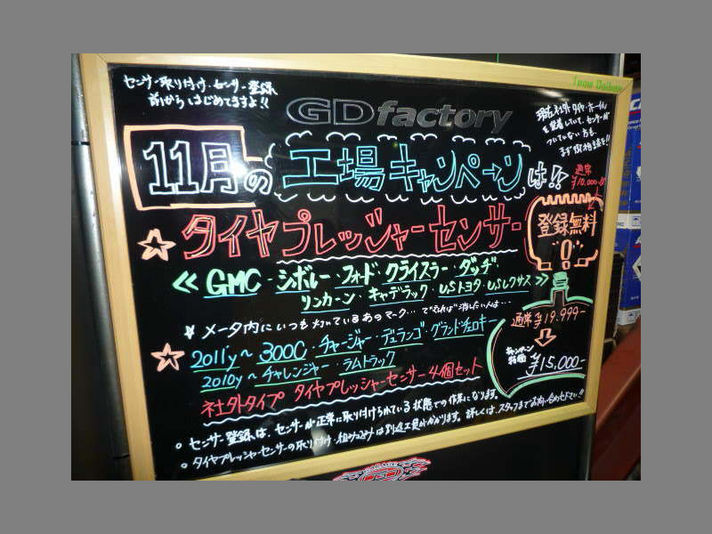 センサー取り付け、センサー登録
前からはじめてますよ!!
GDfactory
現在社外タイヤ・ホイール
を装着していて、センサーが
ついていない方も、
まず取
11月の工場キャンペーンは!!
通常
¥10,000-が
☆タイヤプレッシャーセンサー
登録無料
!0!
≪GMC・シボレー・フォード・クライスラー・ダッヂ・
リンカーン・キャデラック・USトヨタ・USレクサス≫
メータ内にいつも灯いているあのマーク…できれば消したい人は…
☆2011y~300C・チャージャー・デュランゴ・グランドチェロキー
2010y~チャレンジャー・ラムトラック
社外タイプ タイヤプレッシャーセンサー4個セット
通常¥19.999-
キャンペーン
特価
¥15,000-
○センサー登録は、センサーが正常に取り付けられている状態での作業になります。
○タイヤプレッシャーセンサーの取り付け・組み込みは別途工賃がかかります。詳しくはスタッフまでお問い合わせ下さい!!